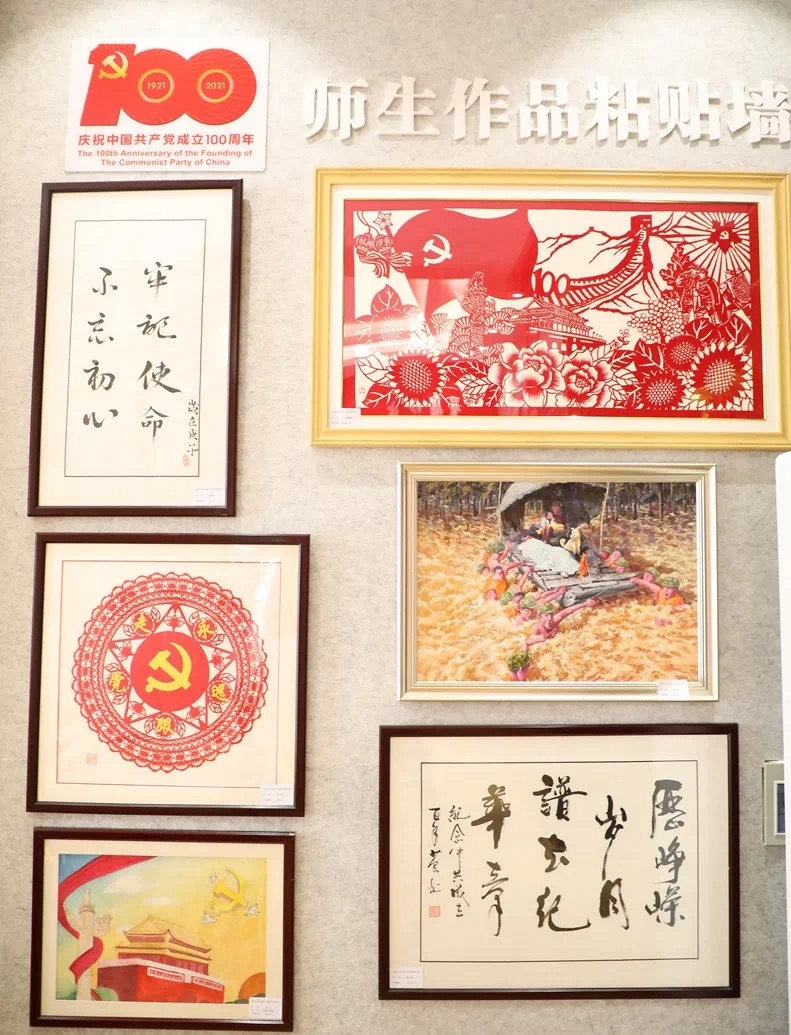 100
1921
2021
庆祝中国共产党成立100周年
The 100th Anniversary of the Founding of
The Communist Party of China
师生作品粘贴墙
牢记使命
不忘初心
歲在庚子
永远跟党走
歷崢嶸
岁月
譜世纪
華章
紀念中共成立
百年